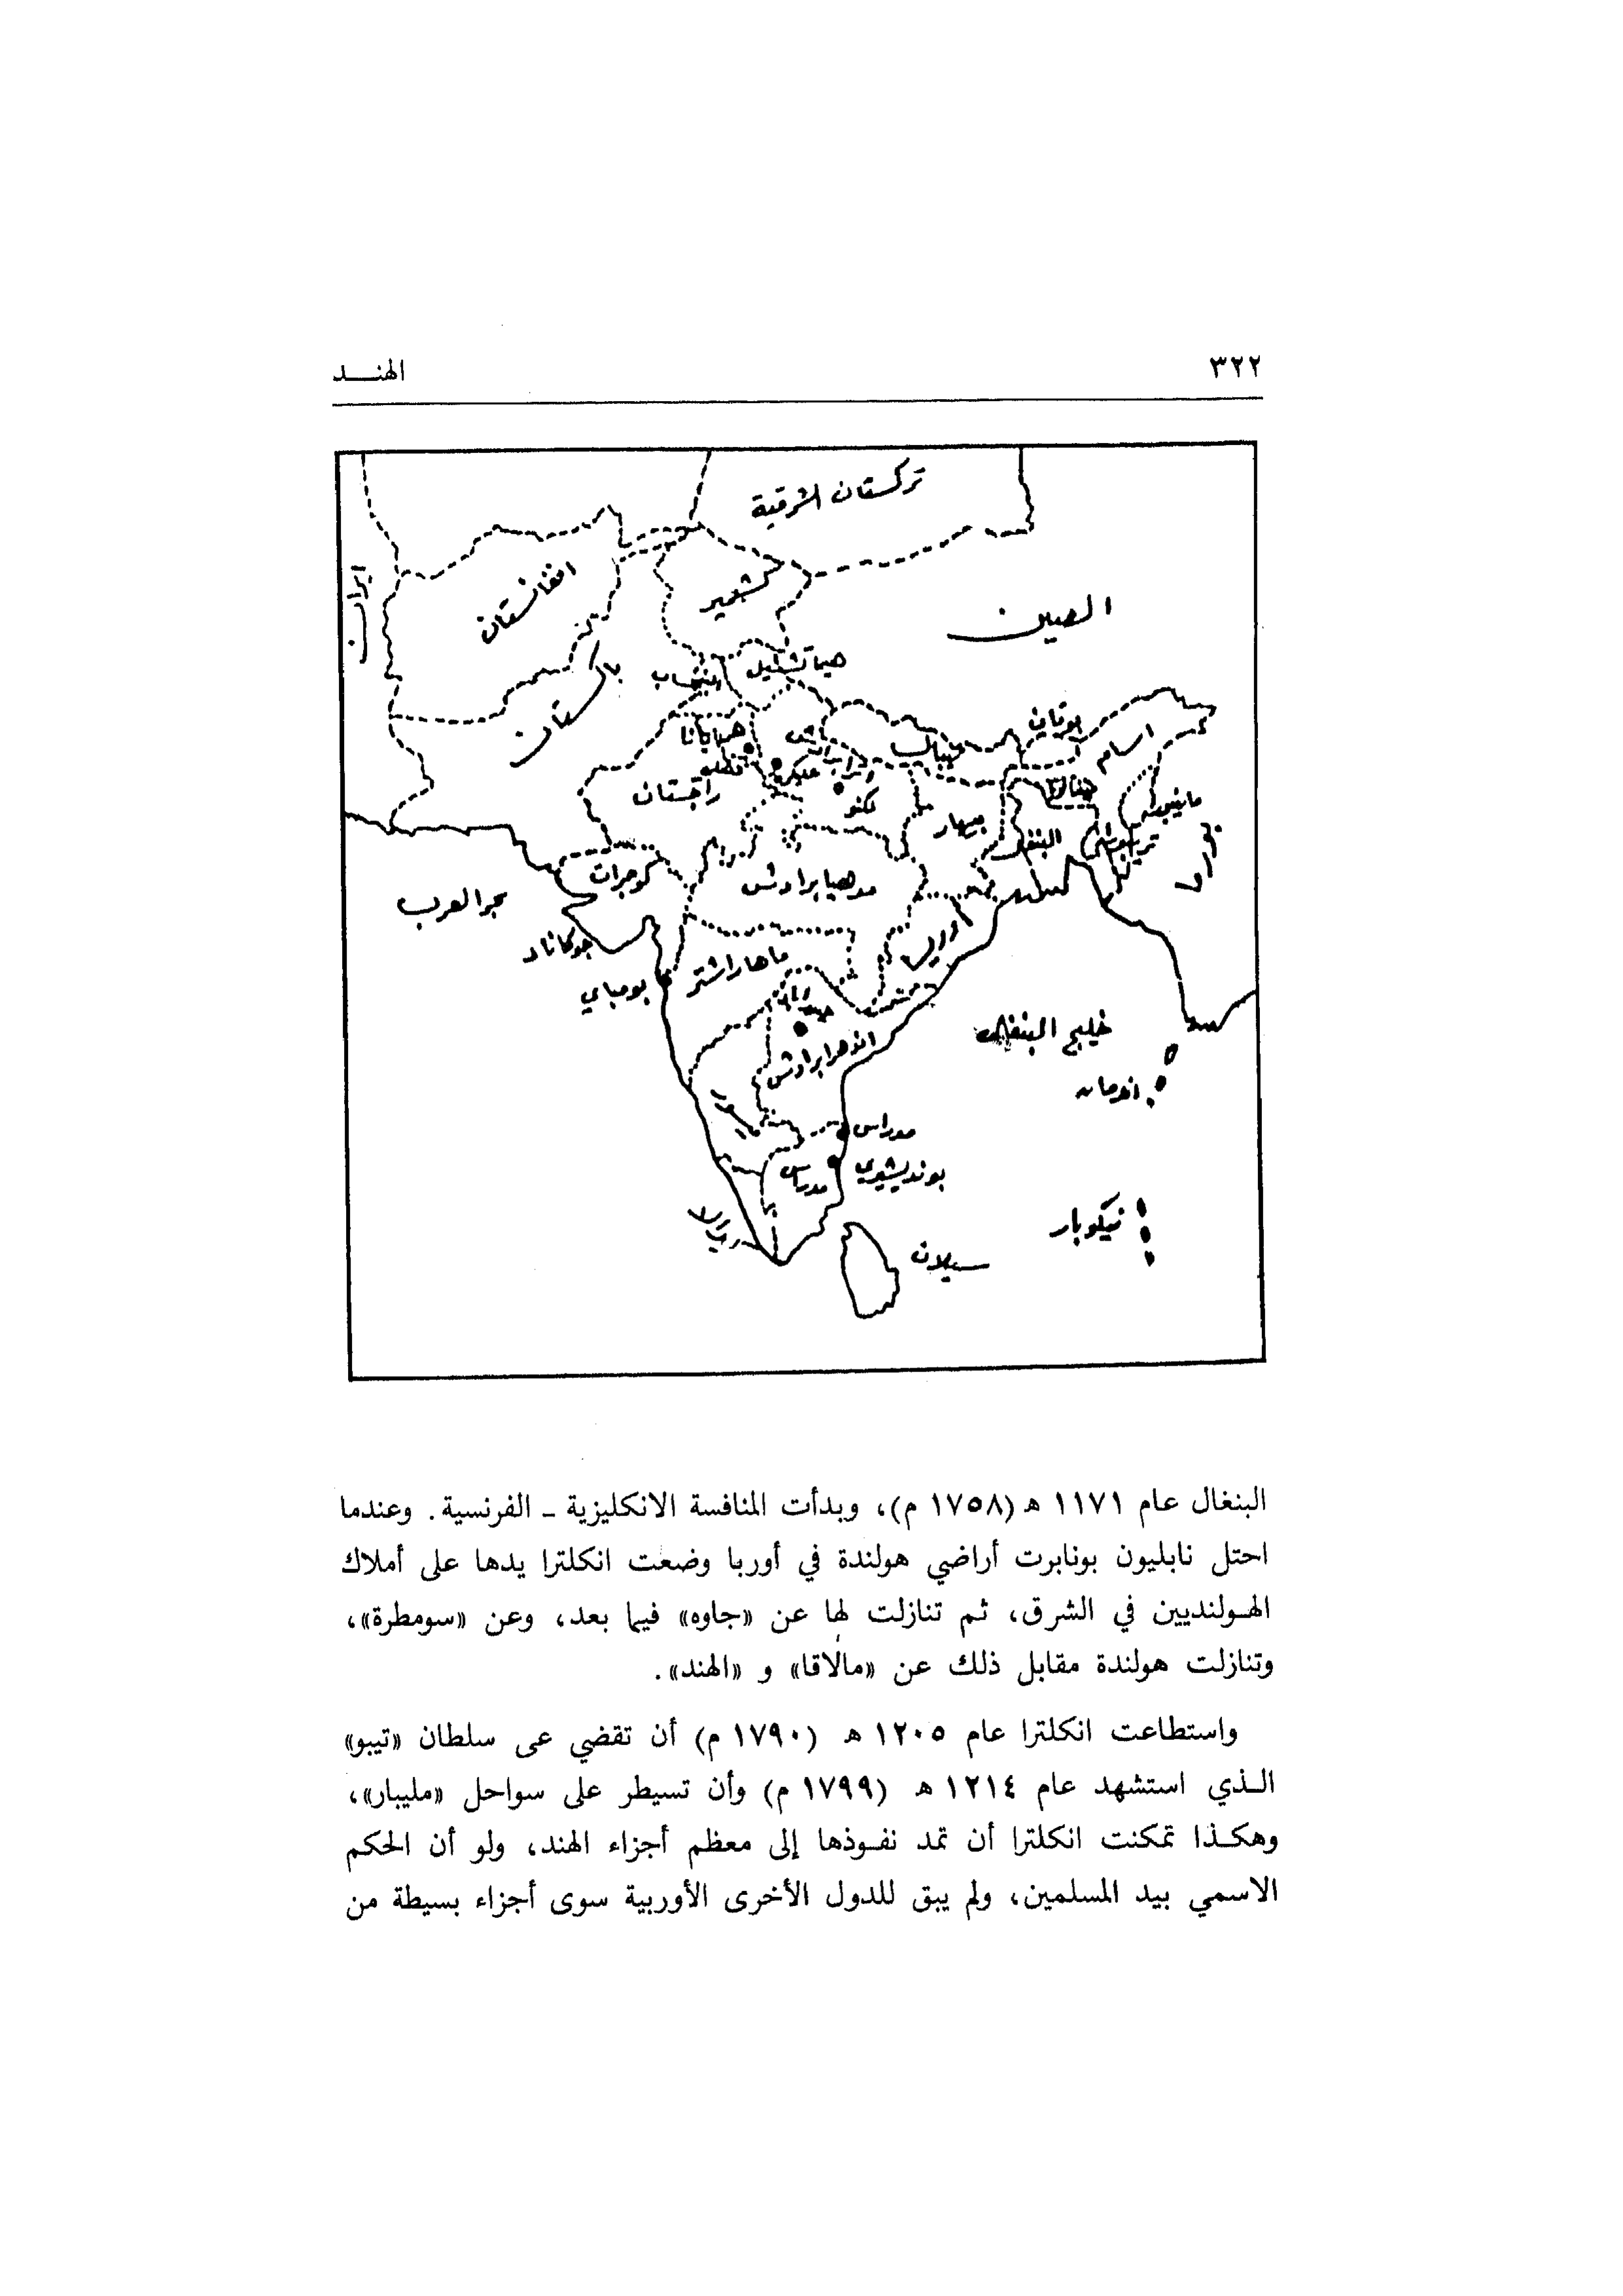 ٣٢٢
الهنـــد
تركستان الشرقية
ايران
افغانستان
كشمير
الصين
باكستان
البنجاب
بوتان
اسام
هريانا
نيبال
راجستان
لكنو
بيهار
البنغال
بورما
كوجرات
مدهيا برادش
بحر العرب
جوكاناد
ماهاراشتر
بومباي
حيدراباد
خليج البنغال
اندهرا برادش
اندمان
مدراس
مدراس
بونديشيري
نيكوبار
سيلان
البنغال عام ١١٧١ ه (١٧٥٨ م)، وبدأت المنافسة الانكليزية ـ الفرنسية. وعندما
احتل نابليون بونابرت أراضي هولندة في أوربا وضعت انكلترا يدها على أملاك
الهـولنديين في الشرق، ثم تنازلت لها عن «جاوه» فيما بعد، وعن «سومطرة»،
وتنازلت هولندة مقابل ذلك عن «مالاقا» و «الهند».
واستطاعت انكلترا عام ١٢٠٥ ه (١٧٩٠ م) أن تقضي عى سلطان «تيبو»
الـذي استشهد عام ١٢١٤ ه (١٧٩٩ م) وأن تسيطر على سواحل «مليبار»،
وهكـذا تمكنت انكلترا أن تمد نفـوذها إلى معظم أجزاء الهند، ولو أن الحكم
الاسمي بيد المسلمين، ولم يبق للدول الأخرى الأوربية سوى أجزاء بسيطة من